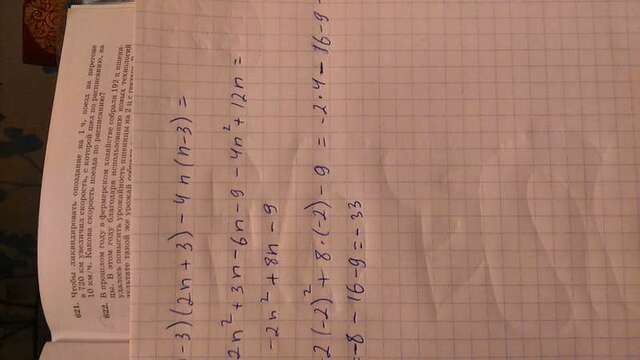 621. Чтобы ликвидировать опоздание на 1 ч, поезд на перегоне
в 720 км увеличил скорость, с которой шел по расписанию, на
10 км/ч. Какова скорость поезда по расписанию?
622. В прошлом году в фермерском хозяйстве собрали 192 ц пшени-
цы. В этом году благодаря использованию новых технологий
удалось повысить урожайность пшеницы на 2 ц с гектара. В
зультате такой же урожай собрали
-3)(2n+3)-4n(n-3)=
2n²+3n-6n-9-4n²+12n=
-2n²+8n-9
-2(-2)²+8·(-2)-9=-2·4-16-9
=-8-16-9=-33